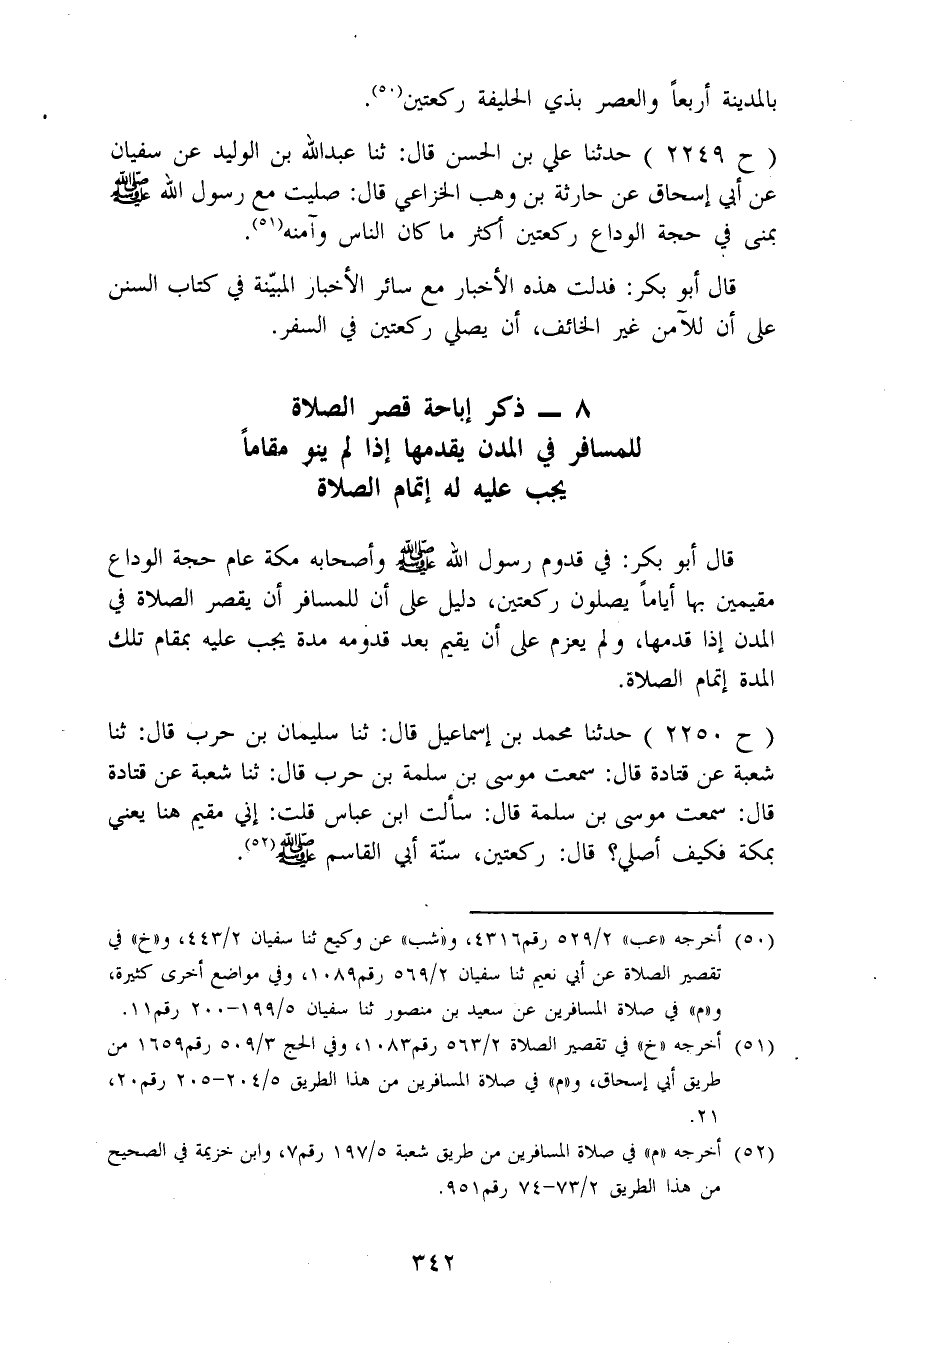 بالمدينة أربعاً والعصر بذي الحليفة ركعتين(٥٠).
( ح ٢٢٤٩ ) حدثنا علي بن الحسن قال: ثنا عبدالله بن الوليد عن سفيان
عن أبي إسحاق عن حارثة بن وهب الخزاعي قال: صليت مع رسول الله ﷺ
بمنى في حجة الوداع ركعتين أكثر ما كان الناس وآمنه(٥١).
قال أبو بكر: فدلت هذه الأخبار مع سائر الأخبار المبيّنة في كتاب السنن
على أن للآمن غير الخائف، أن يصلي ركعتين في السفر.
٨ — ذكر إباحة قصر الصلاة
للمسافر في المدن يقدمها إذا لم ينو مقاماً
يجب عليه له إتمام الصلاة
قال أبو بكر: في قدوم رسول الله ﷺ وأصحابه مكة عام حجة الوداع
مقيمين بها أياماً يصلون ركعتين، دليل على أن للمسافر أن يقصر الصلاة في
المدن إذا قدمها، ولم يعزم على أن يقيم بعد قدومه مدة يجب عليه بمقام تلك
المدة إتمام الصلاة.
( ح ٢٢٥٠ ) حدثنا محمد بن إسماعيل قال: ثنا سليمان بن حرب قال: ثنا
شعبة عن قتادة قال: سمعت موسى بن سلمة بن حرب قال: ثنا شعبة عن قتادة
قال: سمعت موسى بن سلمة قال: سألت ابن عباس قلت: إني مقيم هنا يعني
بمكة فكيف أصلي؟ قال: ركعتين، سنّة أبي القاسم ﷺ(٥٢).
(٥٠) أخرجه «عب» ٥٢٩/٢ رقم٤٣١٦، و«شب» عن وكيع ثنا سفيان ٤٤٣/٢، و«خ» في
تقصير الصلاة عن أبي نعيم ثنا سفيان ٥٦٩/٢ رقم١٠٨٩، وفي مواضع أخرى كثيرة،
و«م» في صلاة المسافرين عن سعيد بن منصور ثنا سفيان ١٩٩/٥–٢٠٠ رقم١١.
(٥١) أخرجه «خ» في تقصير الصلاة ٥٦٣/٢ رقم١٠٨٣، وفي الحج ٥٠٩/٣ رقم١٦٥٩ من
طريق أبي إسحاق، و«م» في صلاة المسافرين من هذا الطريق ٢٠٤/٥–٢٠٥ رقم٢٠،
٢١.
(٥٢) أخرجه «م» في صلاة المسافرين من طريق شعبة ١٩٧/٥ رقم٧، وابن خزيمة في الصحيح
من هذا الطريق ٧٣/٢–٧٤ رقم٩٥١.
٣٤٢